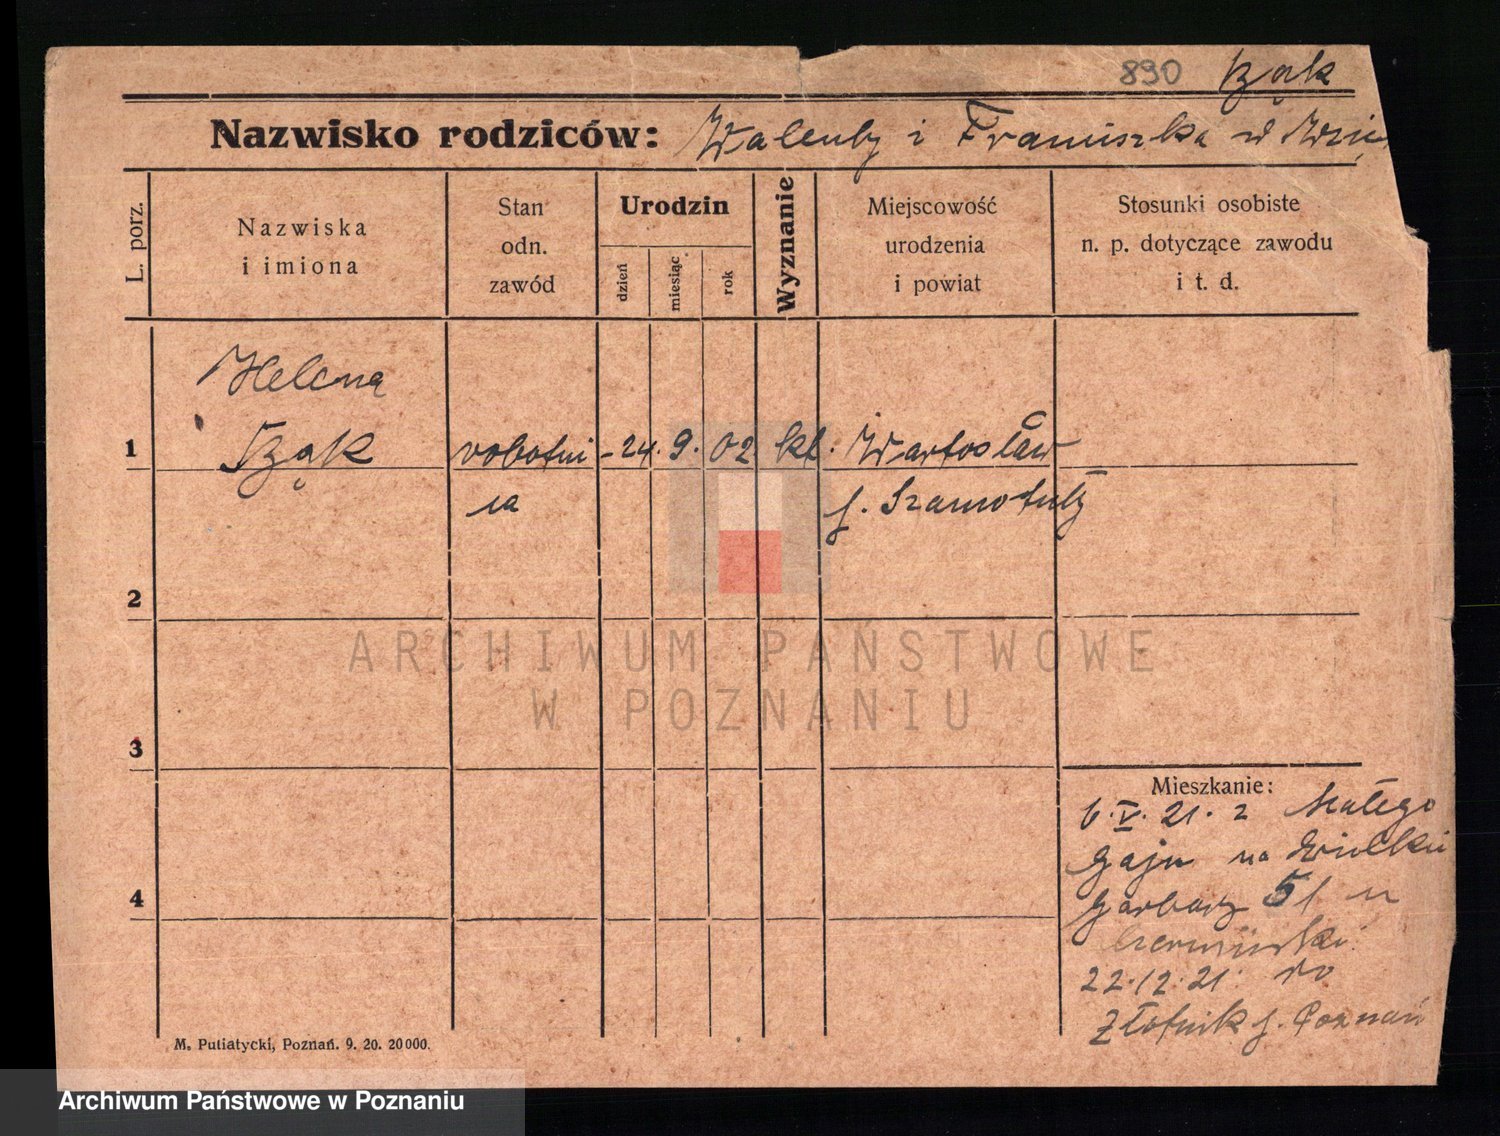 890 Bząk
Nazwisko rodziców: Walenty i Franciszka
L. porz.
Nazwiska
i imiona
Stan
odn.
zawód
Urodzin
dzień
miesiąc
rok
Wyznanie
Miejscowość
urodzenia
i powiat
Stosunki osobiste
n. p. dotyczące zawodu
i t. d.
Helena
1 Bząk robotni - 24. 9. 02 kt. Wartosław
ca p. Szamotuły
2
3
4
Mieszkanie:
6. V. 21. z Małego
Gaju na Wielkie
Garbary 51 u
22.12.21. do
Złotnik p. Poznań
M. Putiatycki, Poznań. 9. 20. 20000.
ARCHIWUM PAŃSTWOWE
W POZNANIU
Archiwum Państwowe w Poznaniu